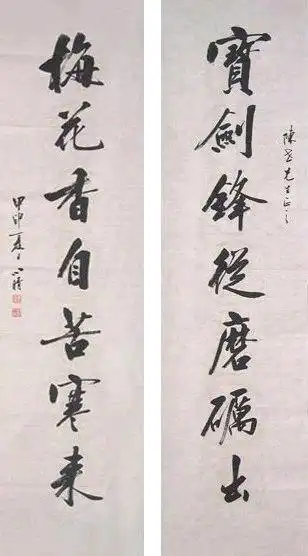 寶劍鋒從磨礪出
先生正之
梅花香自苦寒来
甲申夏